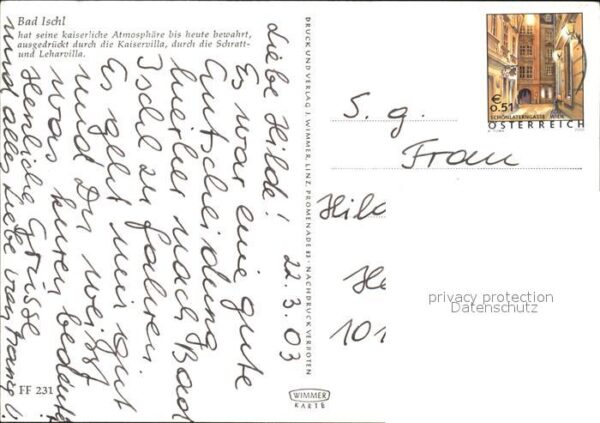 Bad Ischl
hat seine kaiserliche Atmosphäre bis heute bewahrt,
ausgedrückt durch die Kaiservilla, durch die Schratt-
und Leharvilla.
22.3.03
Liebe Hilde!
Es war eine gute
Entscheidung
hierher nach Bad
Ischl zu fahren.
Es geht mir gut
und Du weisst
was kuren bedeutet
Herzliche Grüsse
und alles Liebe von
FF 231
DRUCK UND VERLAG J. WIMMER, LINZ, PROMENADE 23 - NACHDRUCK VERBOTEN
WIMMER
KARTE
€ 0.51
SCHÖNLATERNGASSE, WIEN
ÖSTERREICH
S. g.
Frau
Hild
He
101
privacy protection
Datenschutz